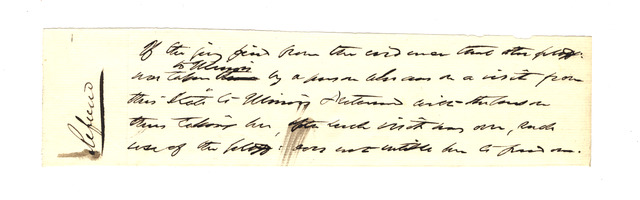 Refused
If the jury find from the evidence that the pltff:
to Illinois
was taken by a person who was on a visit from
this State to Illinois & returned with the person
thus taking her, after such visit was over, such
use of the pltff: does not entitle her to freedom.